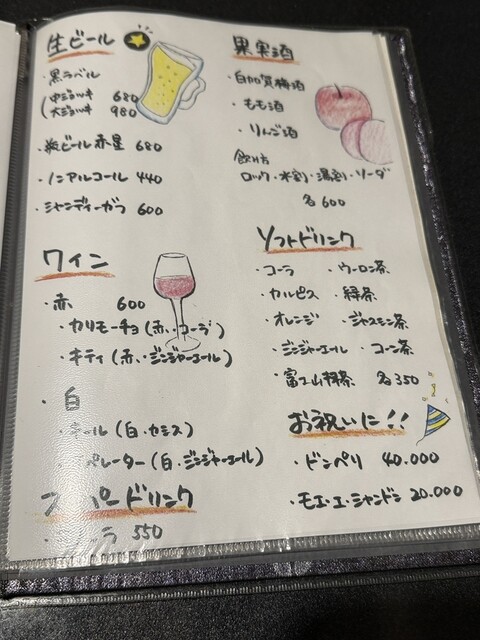 生ビール
・黒ラベル
中ジョッキ 680
大ジョッキ 980
・瓶ビール 赤星 680
・ノンアルコール 440
・シャンディーガフ 600
ワイン
・赤 600
・カリモーチョ(赤・コーラ)
・キティ(赤・ジンジャーエール)
・白
・キール(白・カシス)
ペレーター(白・ジンジャーエール)
パードリンク
ラ 550
果実酒
・白加賀梅酒
・もも酒
・りんご酒
飲け方
ロック・水割・湯割・ソーダ
各600
ソフトドリンク
・コーラ ・ウーロン茶
・カルピス ・緑茶
・オレンジ ・ジャスミン茶
・ジンジャーエール ・コーン茶
・富士山抹茶 各350
お祝いに!!
・ドンペリ 40.000
・モエ・エ・シャンドン 20.000